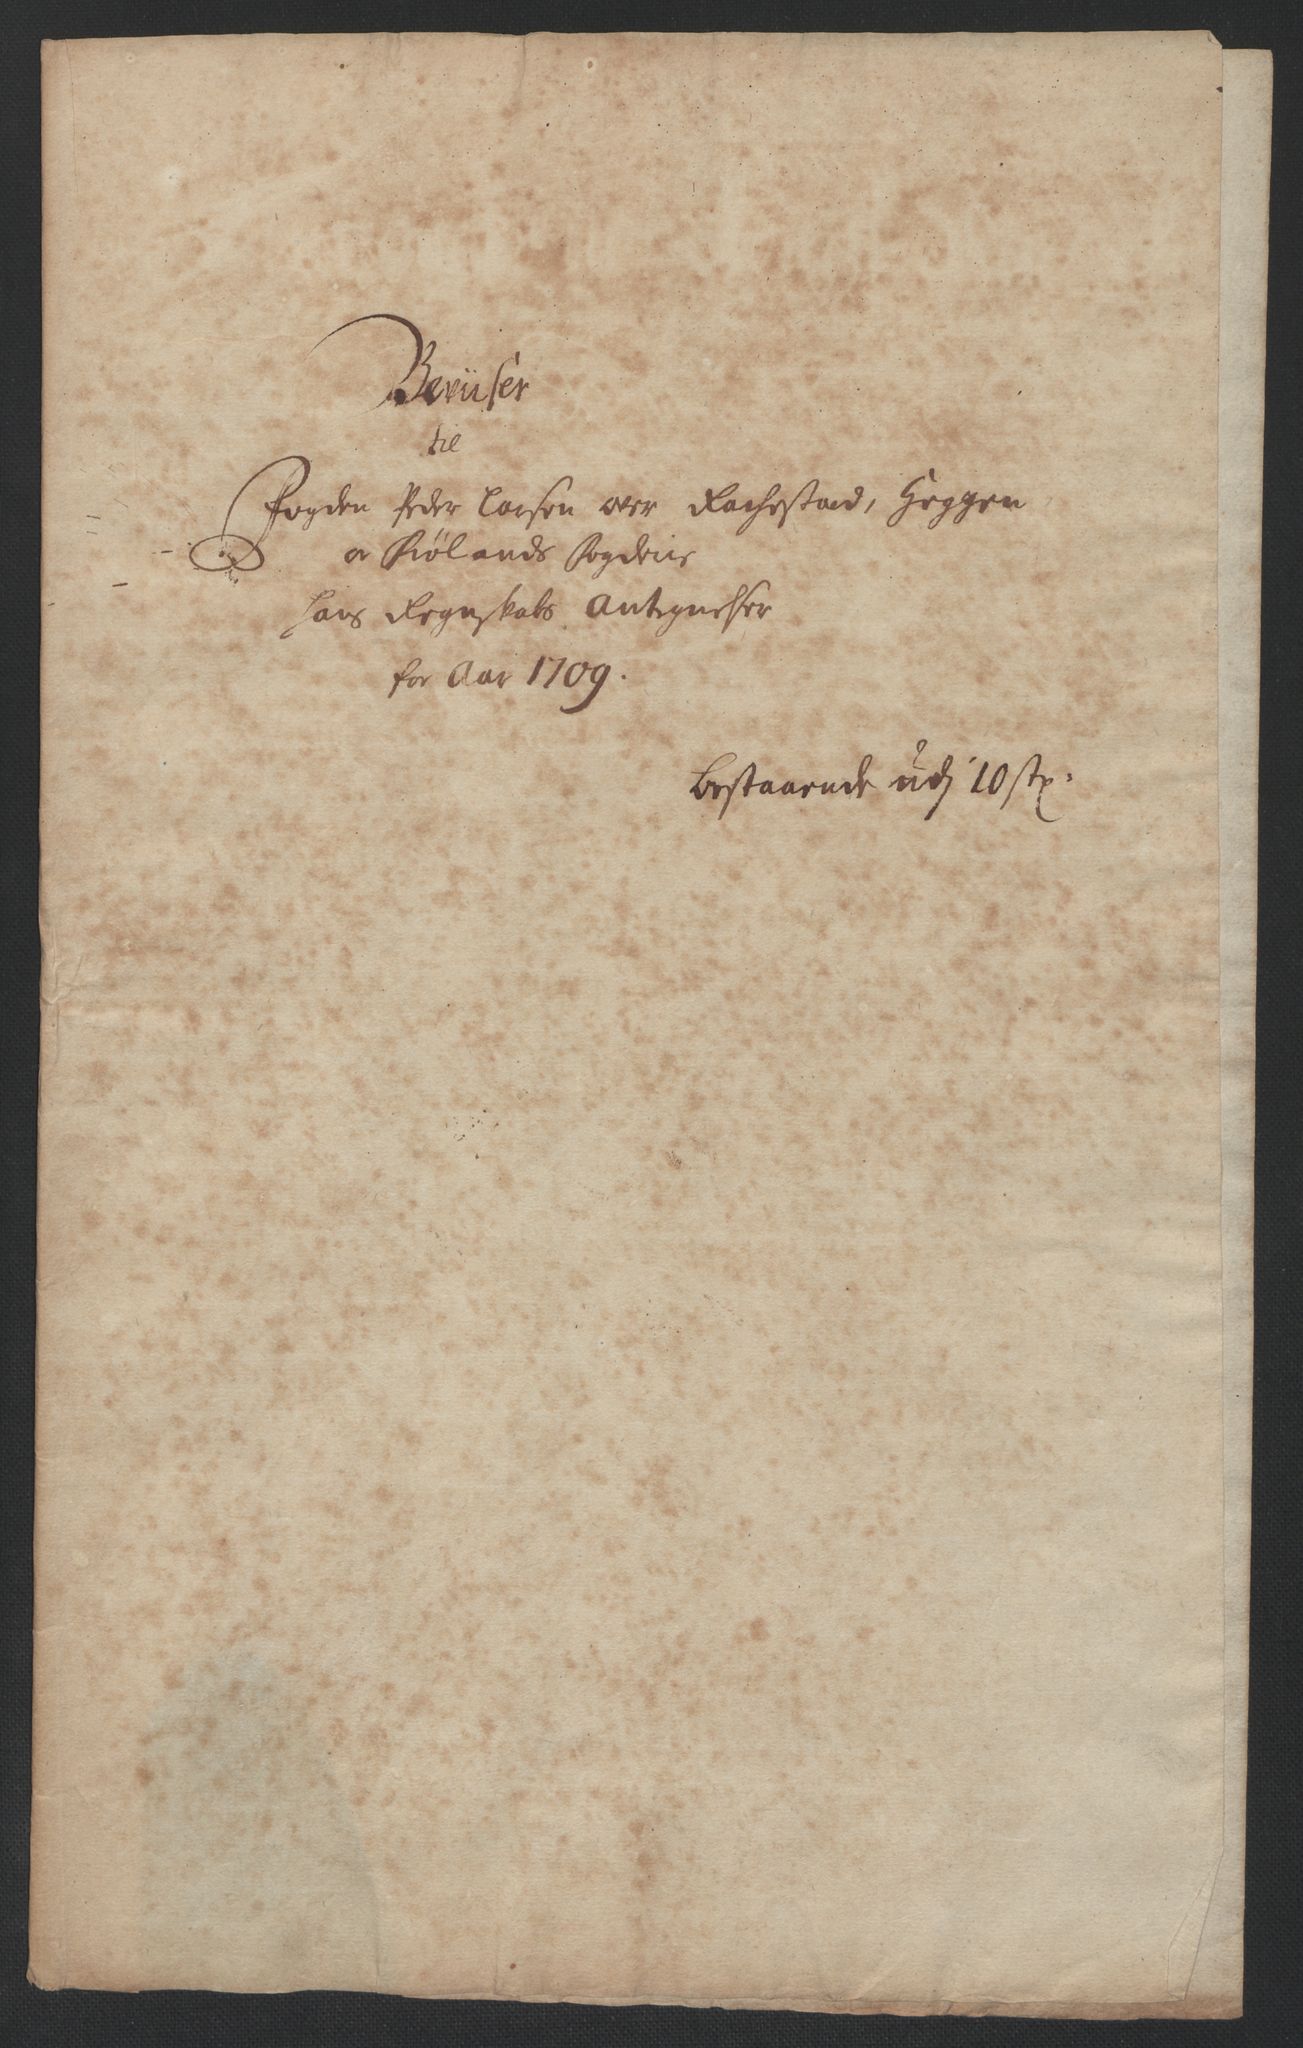 Beviiser
til
Fogden Peder Larsen over Rachestad, Heggen
oc Frølands Fogderie
hans Regnskabs Antegnelser
for Aar 1709.
bestaaende udj 10 st: